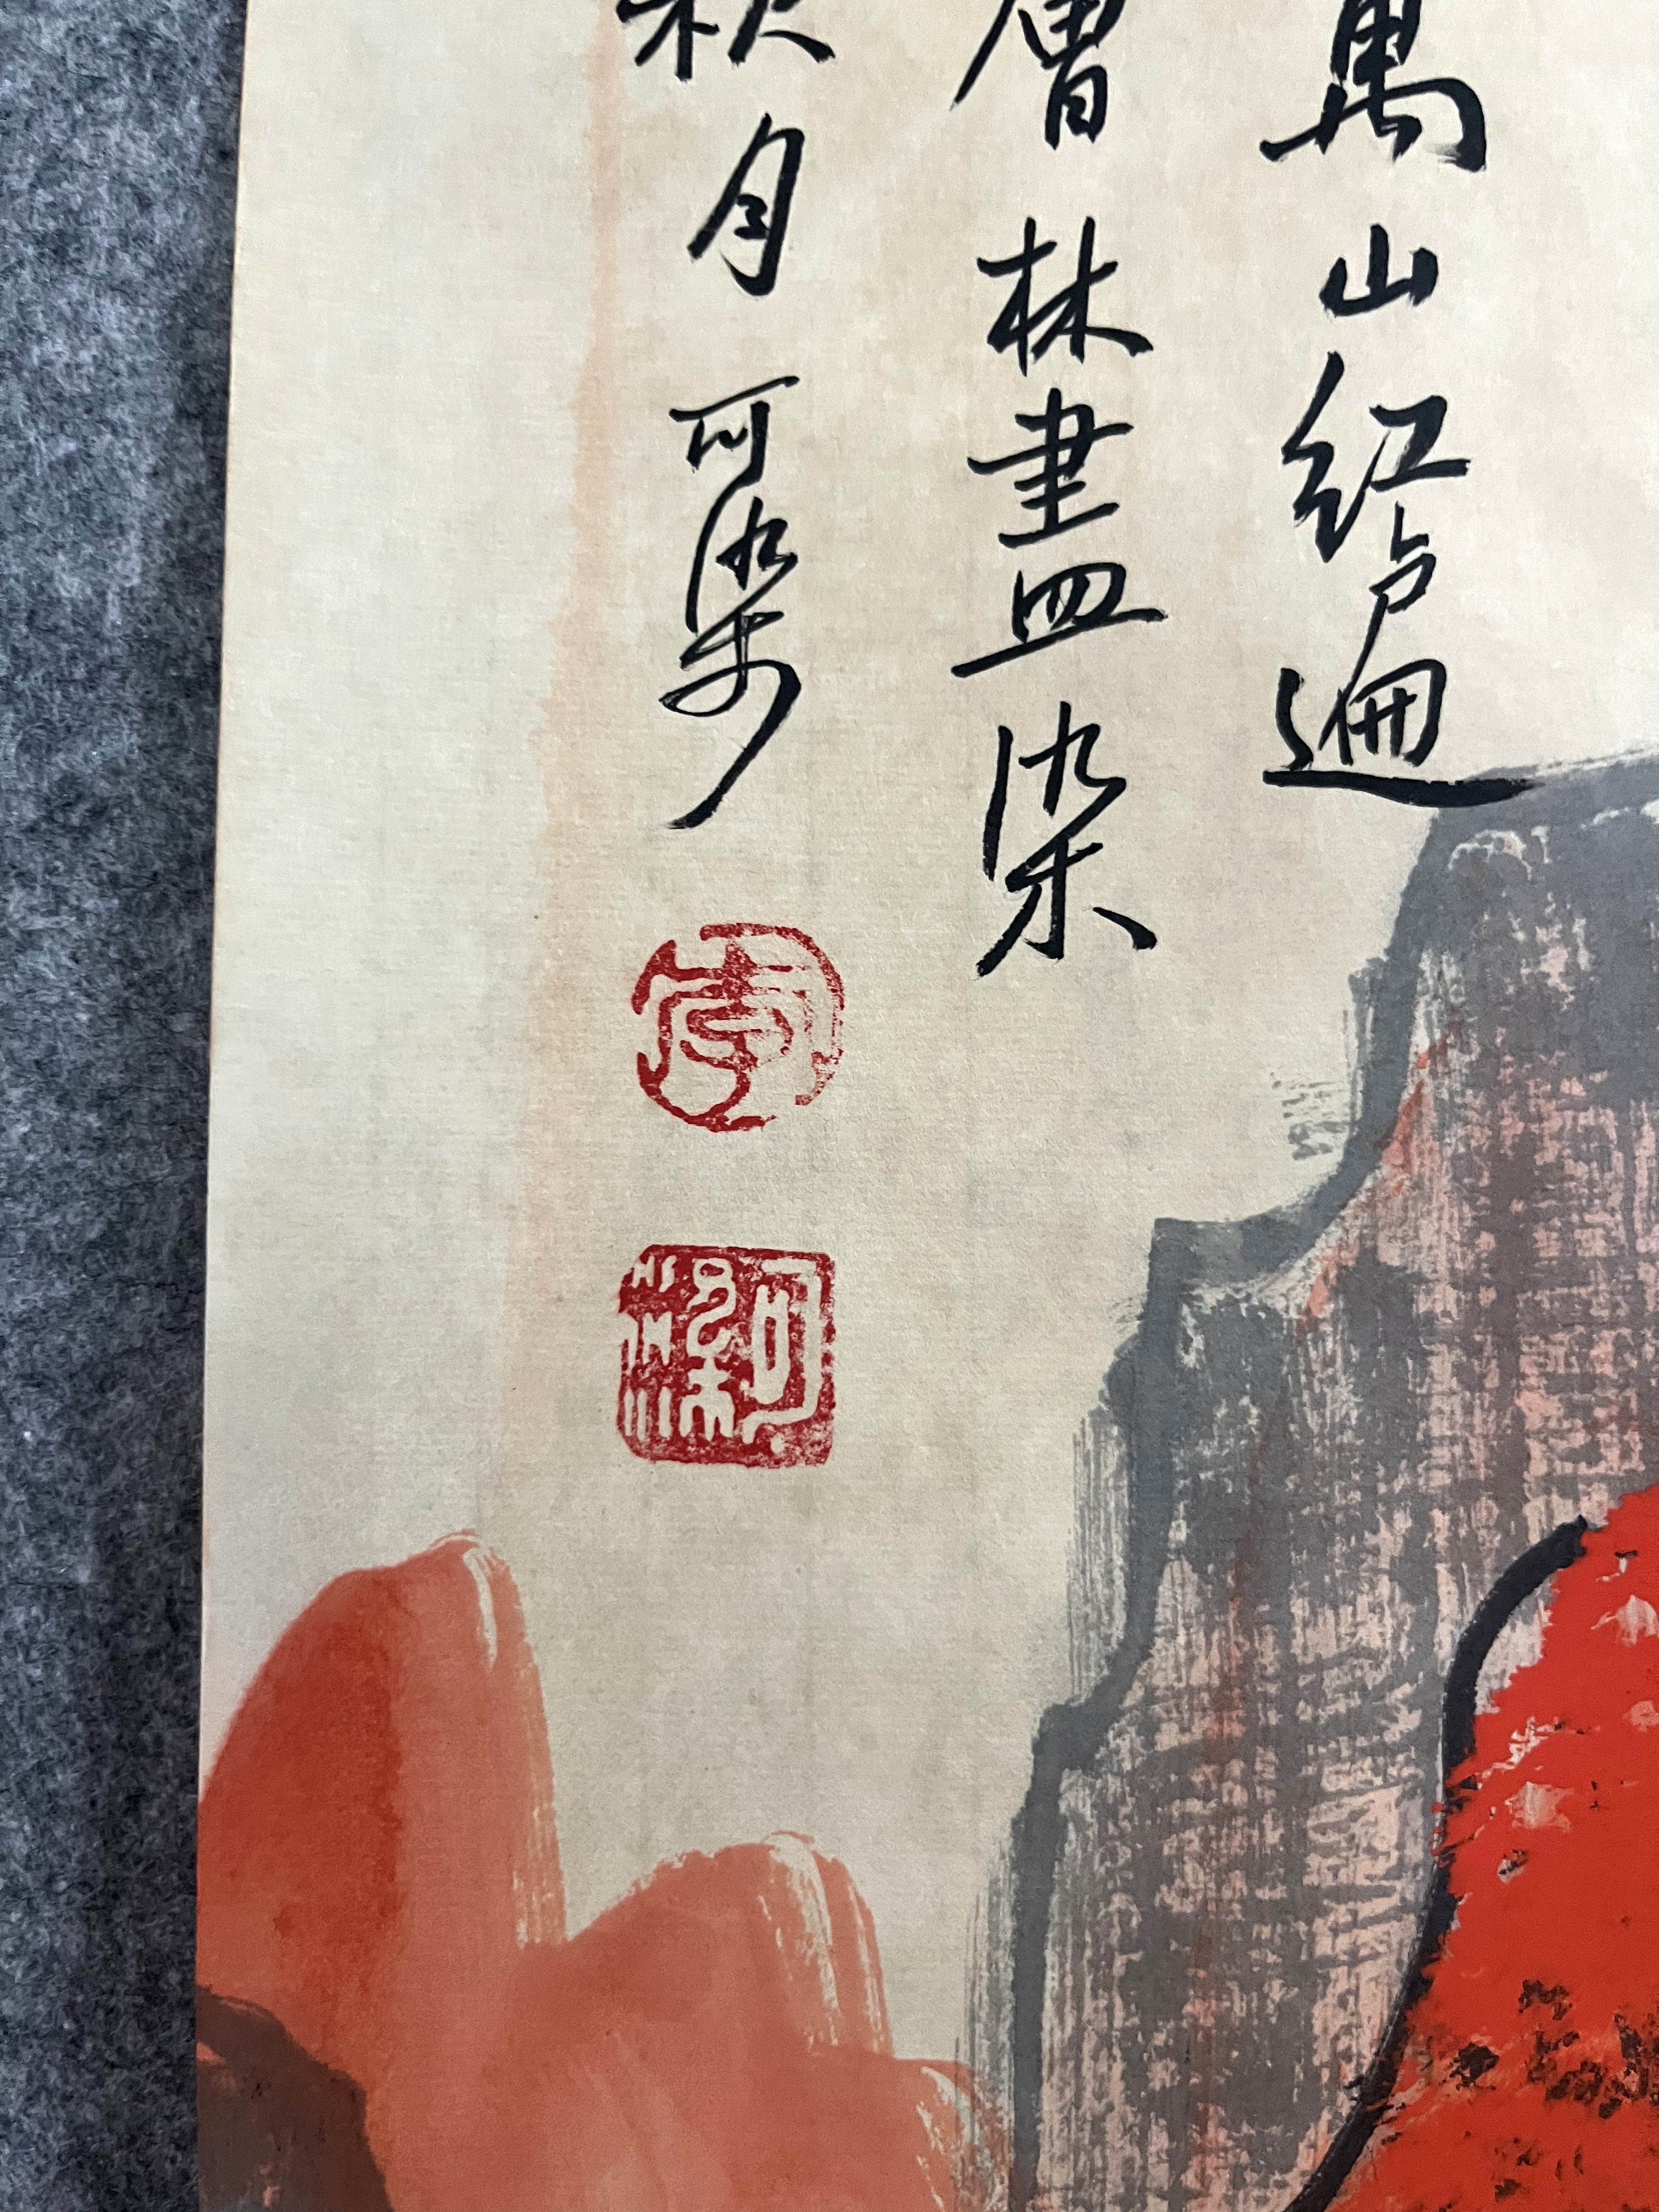 萬山紅遍
層林盡染
秋月可染
李
可染